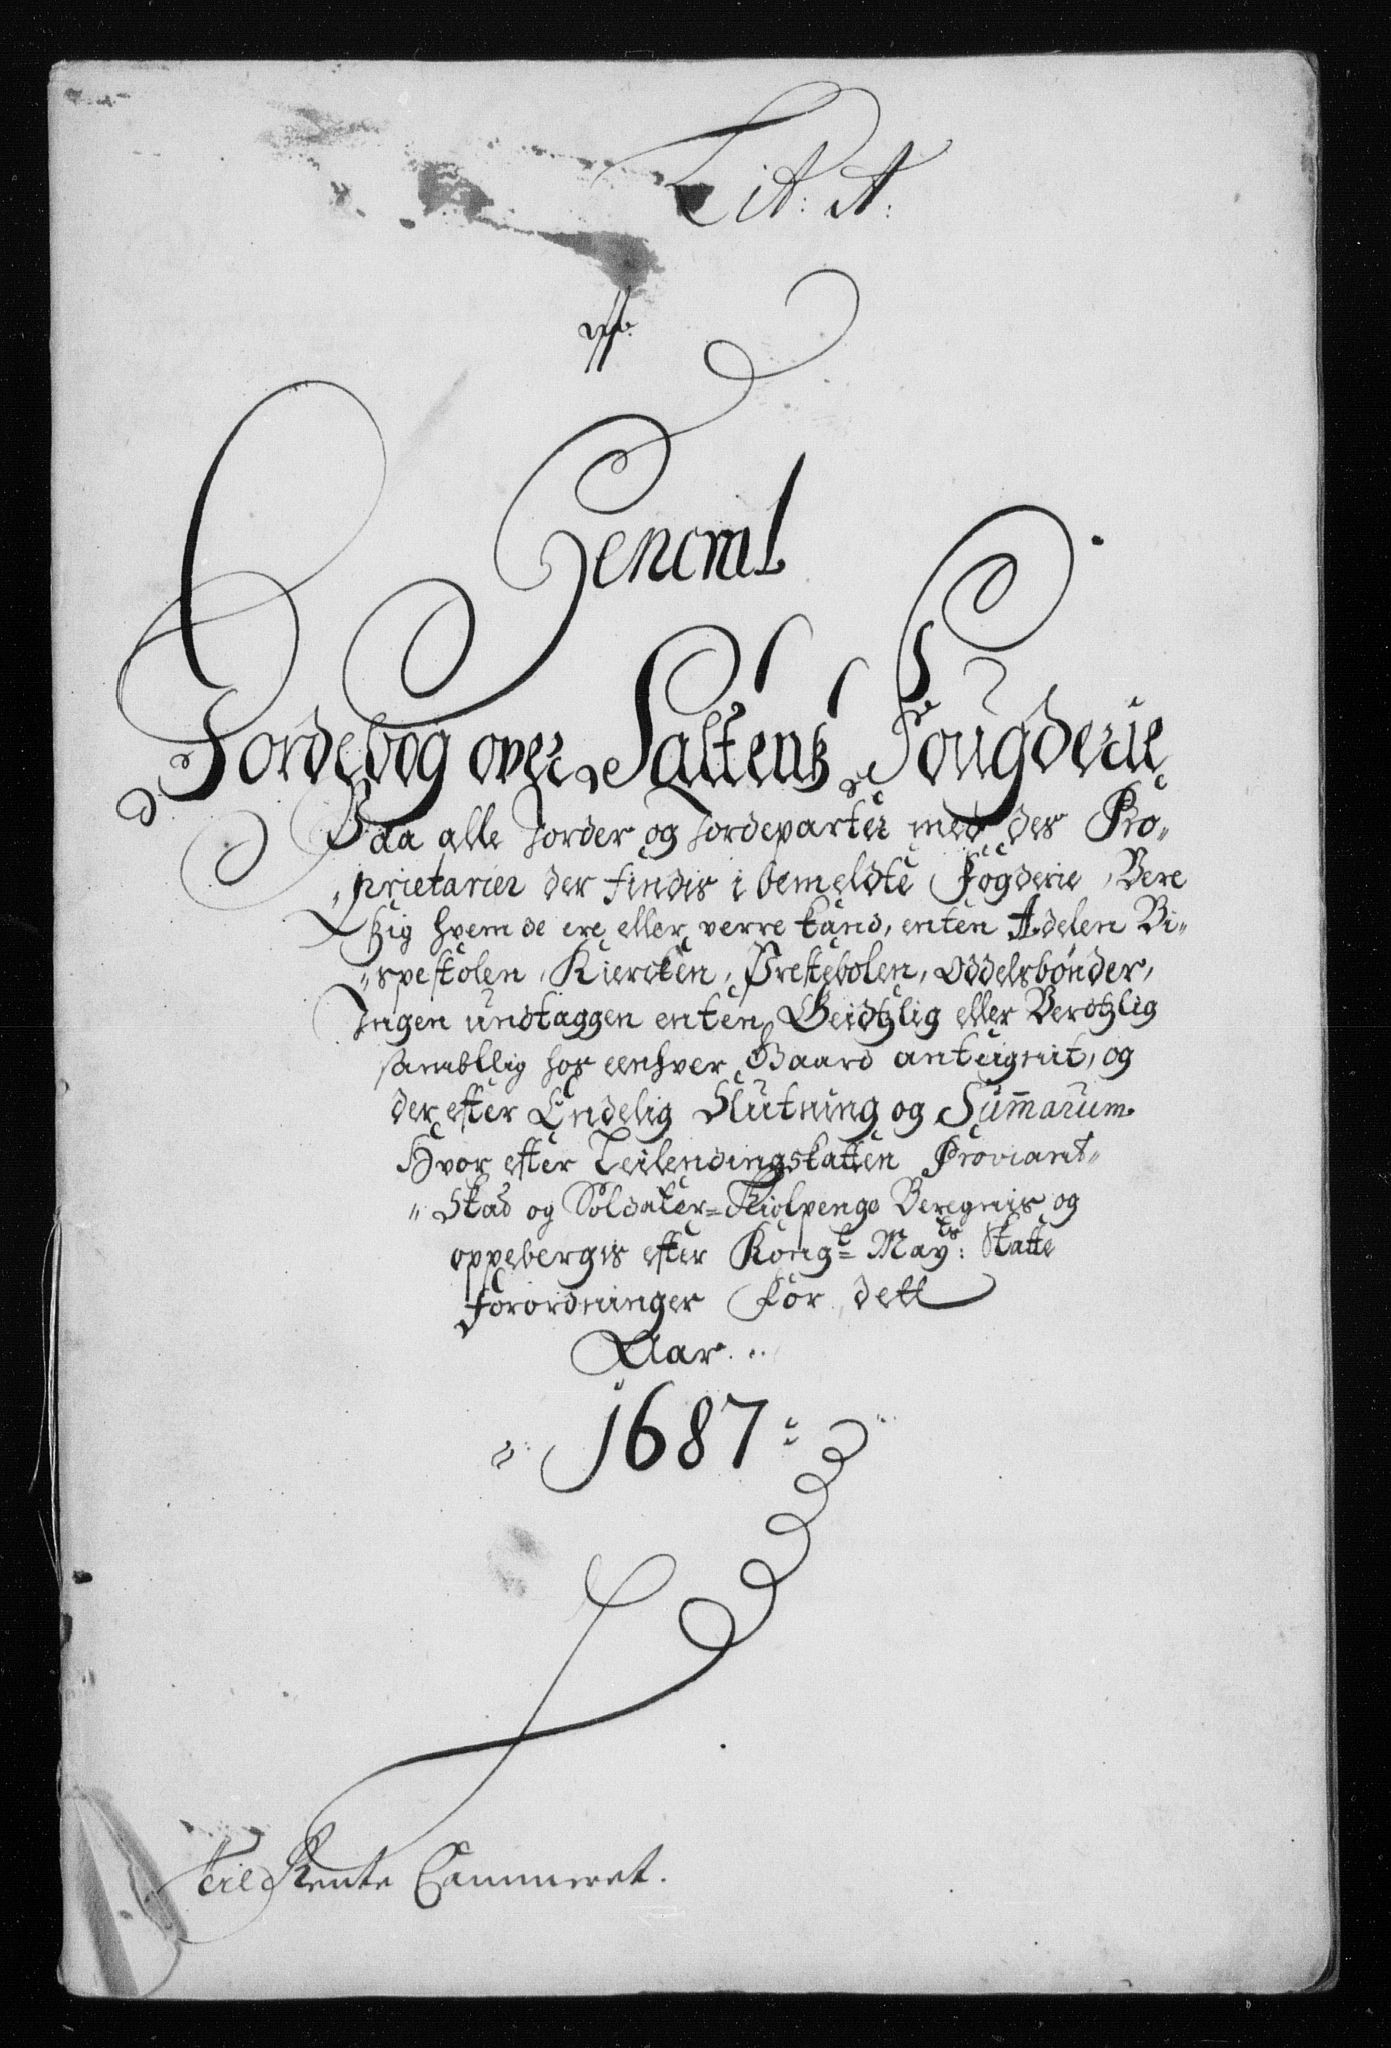 Lit: A:
General
Jordebog over Saltens Fougderie
Paa alle Jorder og Jordeparter med des Pro„
„prietarier der findis i bemeldte Fogderie, Vere
sig hvem de ere eller verre kand, enten Adelen Bi„
„spestolen, Kiercken, Prestebolen, Oddelsbønder,
Ingen undtaggen enten Geidtzlig eller Verdtzlig
sambtlig hos eenhver Gaard anteignit, og
der efter Endelig Slutning og Sum̄arum.
Hvor efter Leilendingskatten Proviant„
„Skad og Soldater=Skiolpenge Beregnis og
oppebergis efter Kongl= Mayts: Skatte
Forordninger for dett
Aar
1687
Til Rente Cammeret.